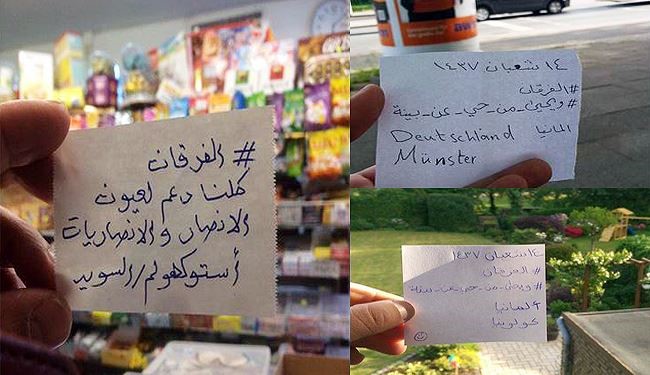 # الفرقان
كلنا دعم لعيون
الانصار والانصاريات
أستوكهولم/السويد
١٤ شعبان ١٤٣٧
#الفرقان
#ويحيى_من_حي_عن_بينة
المانيا
Deutschland
Münster
١٤ شعبان ١٤٣٧
#الفرقان
#ويحيى_من_حي_عن_بينة
المانيا